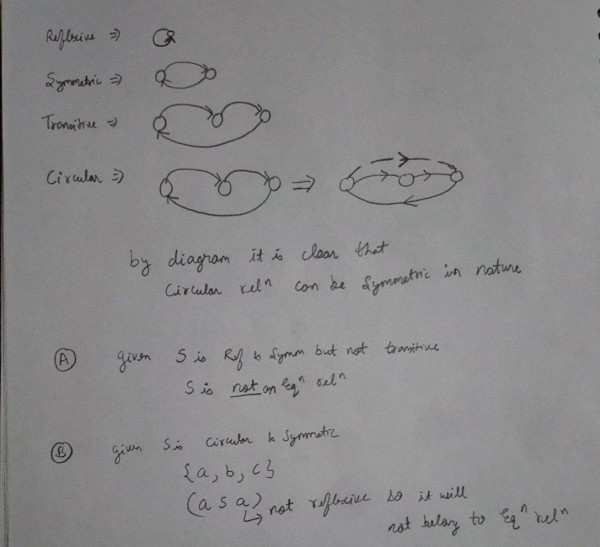 Reflexive ⇒
Symmetric ⇒
Transitive ⇒
Circular ⇒ ⇒
by diagram it is clear that
Circular relⁿ can be Symmetric in nature
(A) given S is Ref & Symm but not transitive
S is not an Eqⁿ relⁿ
(B) given S is Circular & Symmetric
{a, b, c}
(a S a)
↳ not reflexive so it will
not belong to Eqⁿ relⁿ